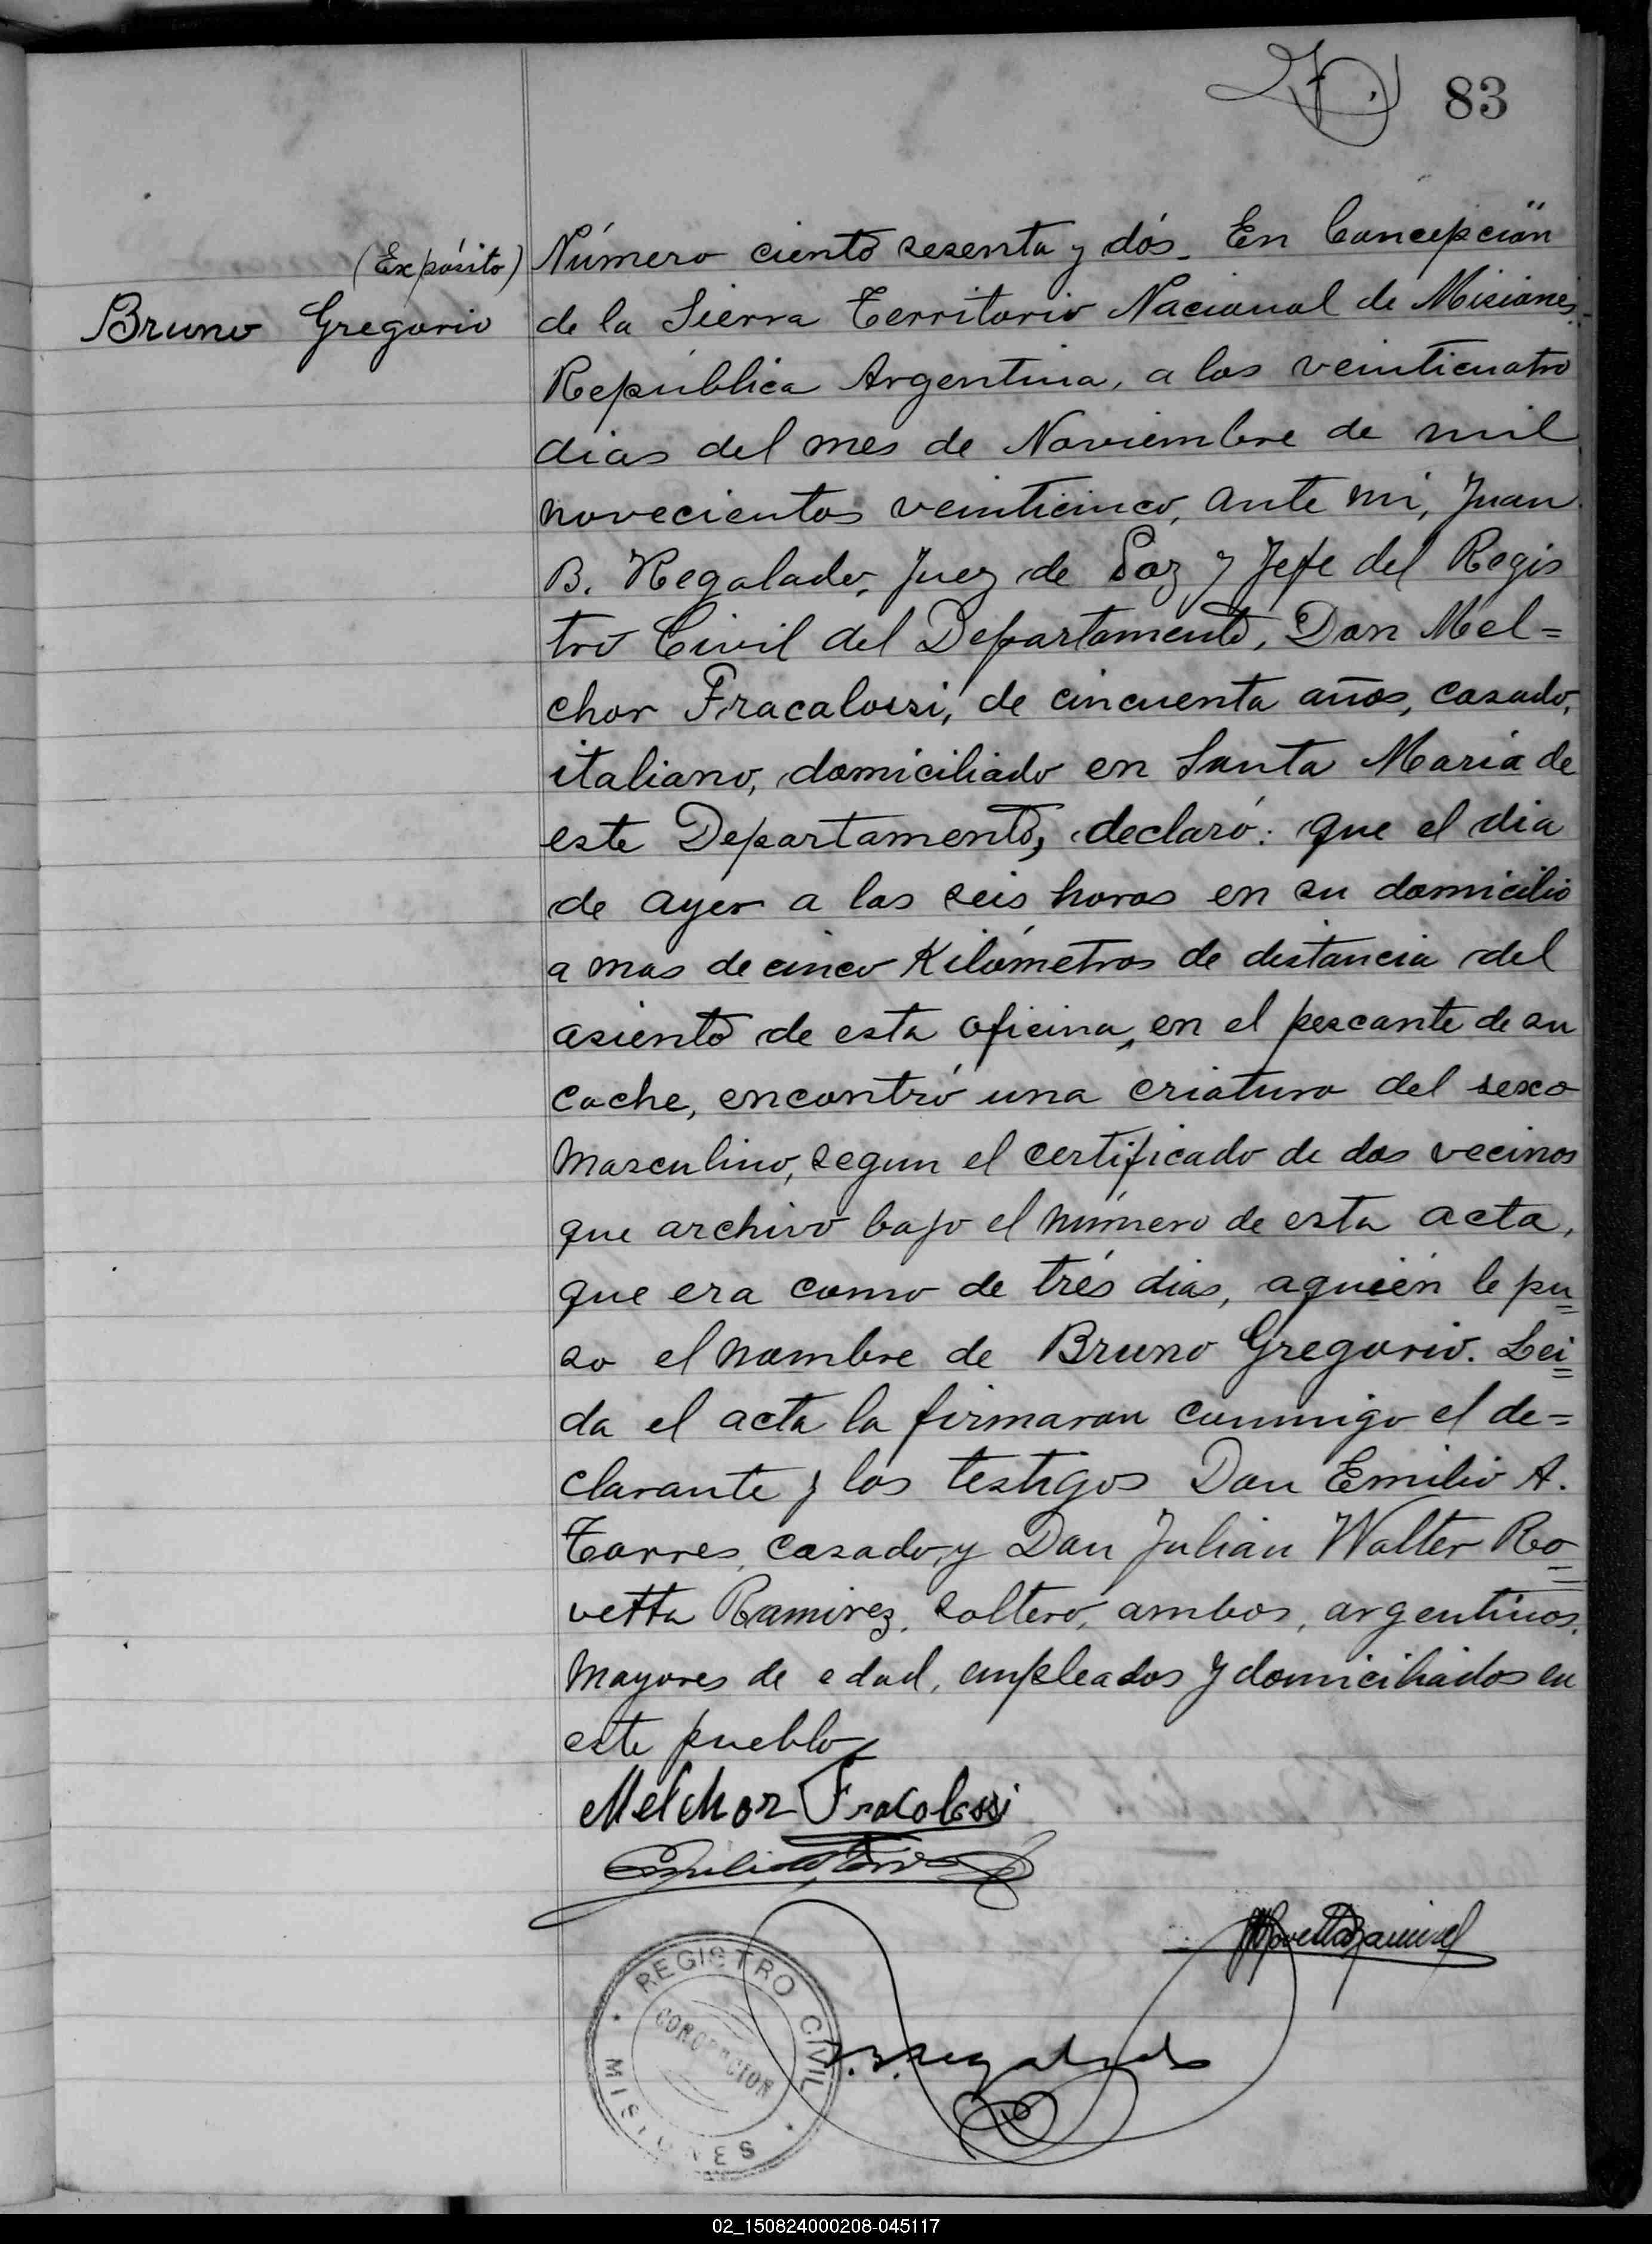 83
(Expósito)
Bruno Gregorio
Número ciento sesenta y dós. En Concepción
de la Sierra Territorio Nacional de Misiones
República Argentina, a los veinticuatro
dias del mes de Noviembre de mil
novecientos veinticinco, ante mí, Juan
B. Regalado, Juez de Paz y Jefe del Regis
tro Civil del Departamento, Don Mel=
chor Fracalossi, de cincuenta años, casado,
italiano, domiciliado en Santa María de
este Departamento, declaró: que el dia
de ayer a las seis horas en su domicilio
a mas de cinco Kilómetros de distancia del
asiento de esta oficina, en el pescante de su
coche, encontró una criatura del sexo
masculino, segun el certificado de dos vecinos
que archivo bajo el número de esta acta,
que era como de trés dias, aquién le pu=
so el nombre de Bruno Gregorio. Lei=
da el acta la firmaron conmigo el de=
clarante y los testigos Don Emilio A.
Torres, casado, y Don Julián Walter Ro=
vetta Ramirez, soltero, ambos, argentinos,
mayores de edad, empleados y domiciliados en
este pueblo
Melchor Fracolossi
Emilio A Torres
JWRovettaRamirez
J.B. Regalado
REGISTRO CIVIL
CONCEPCION
MISIONES
02_150824000208-045117